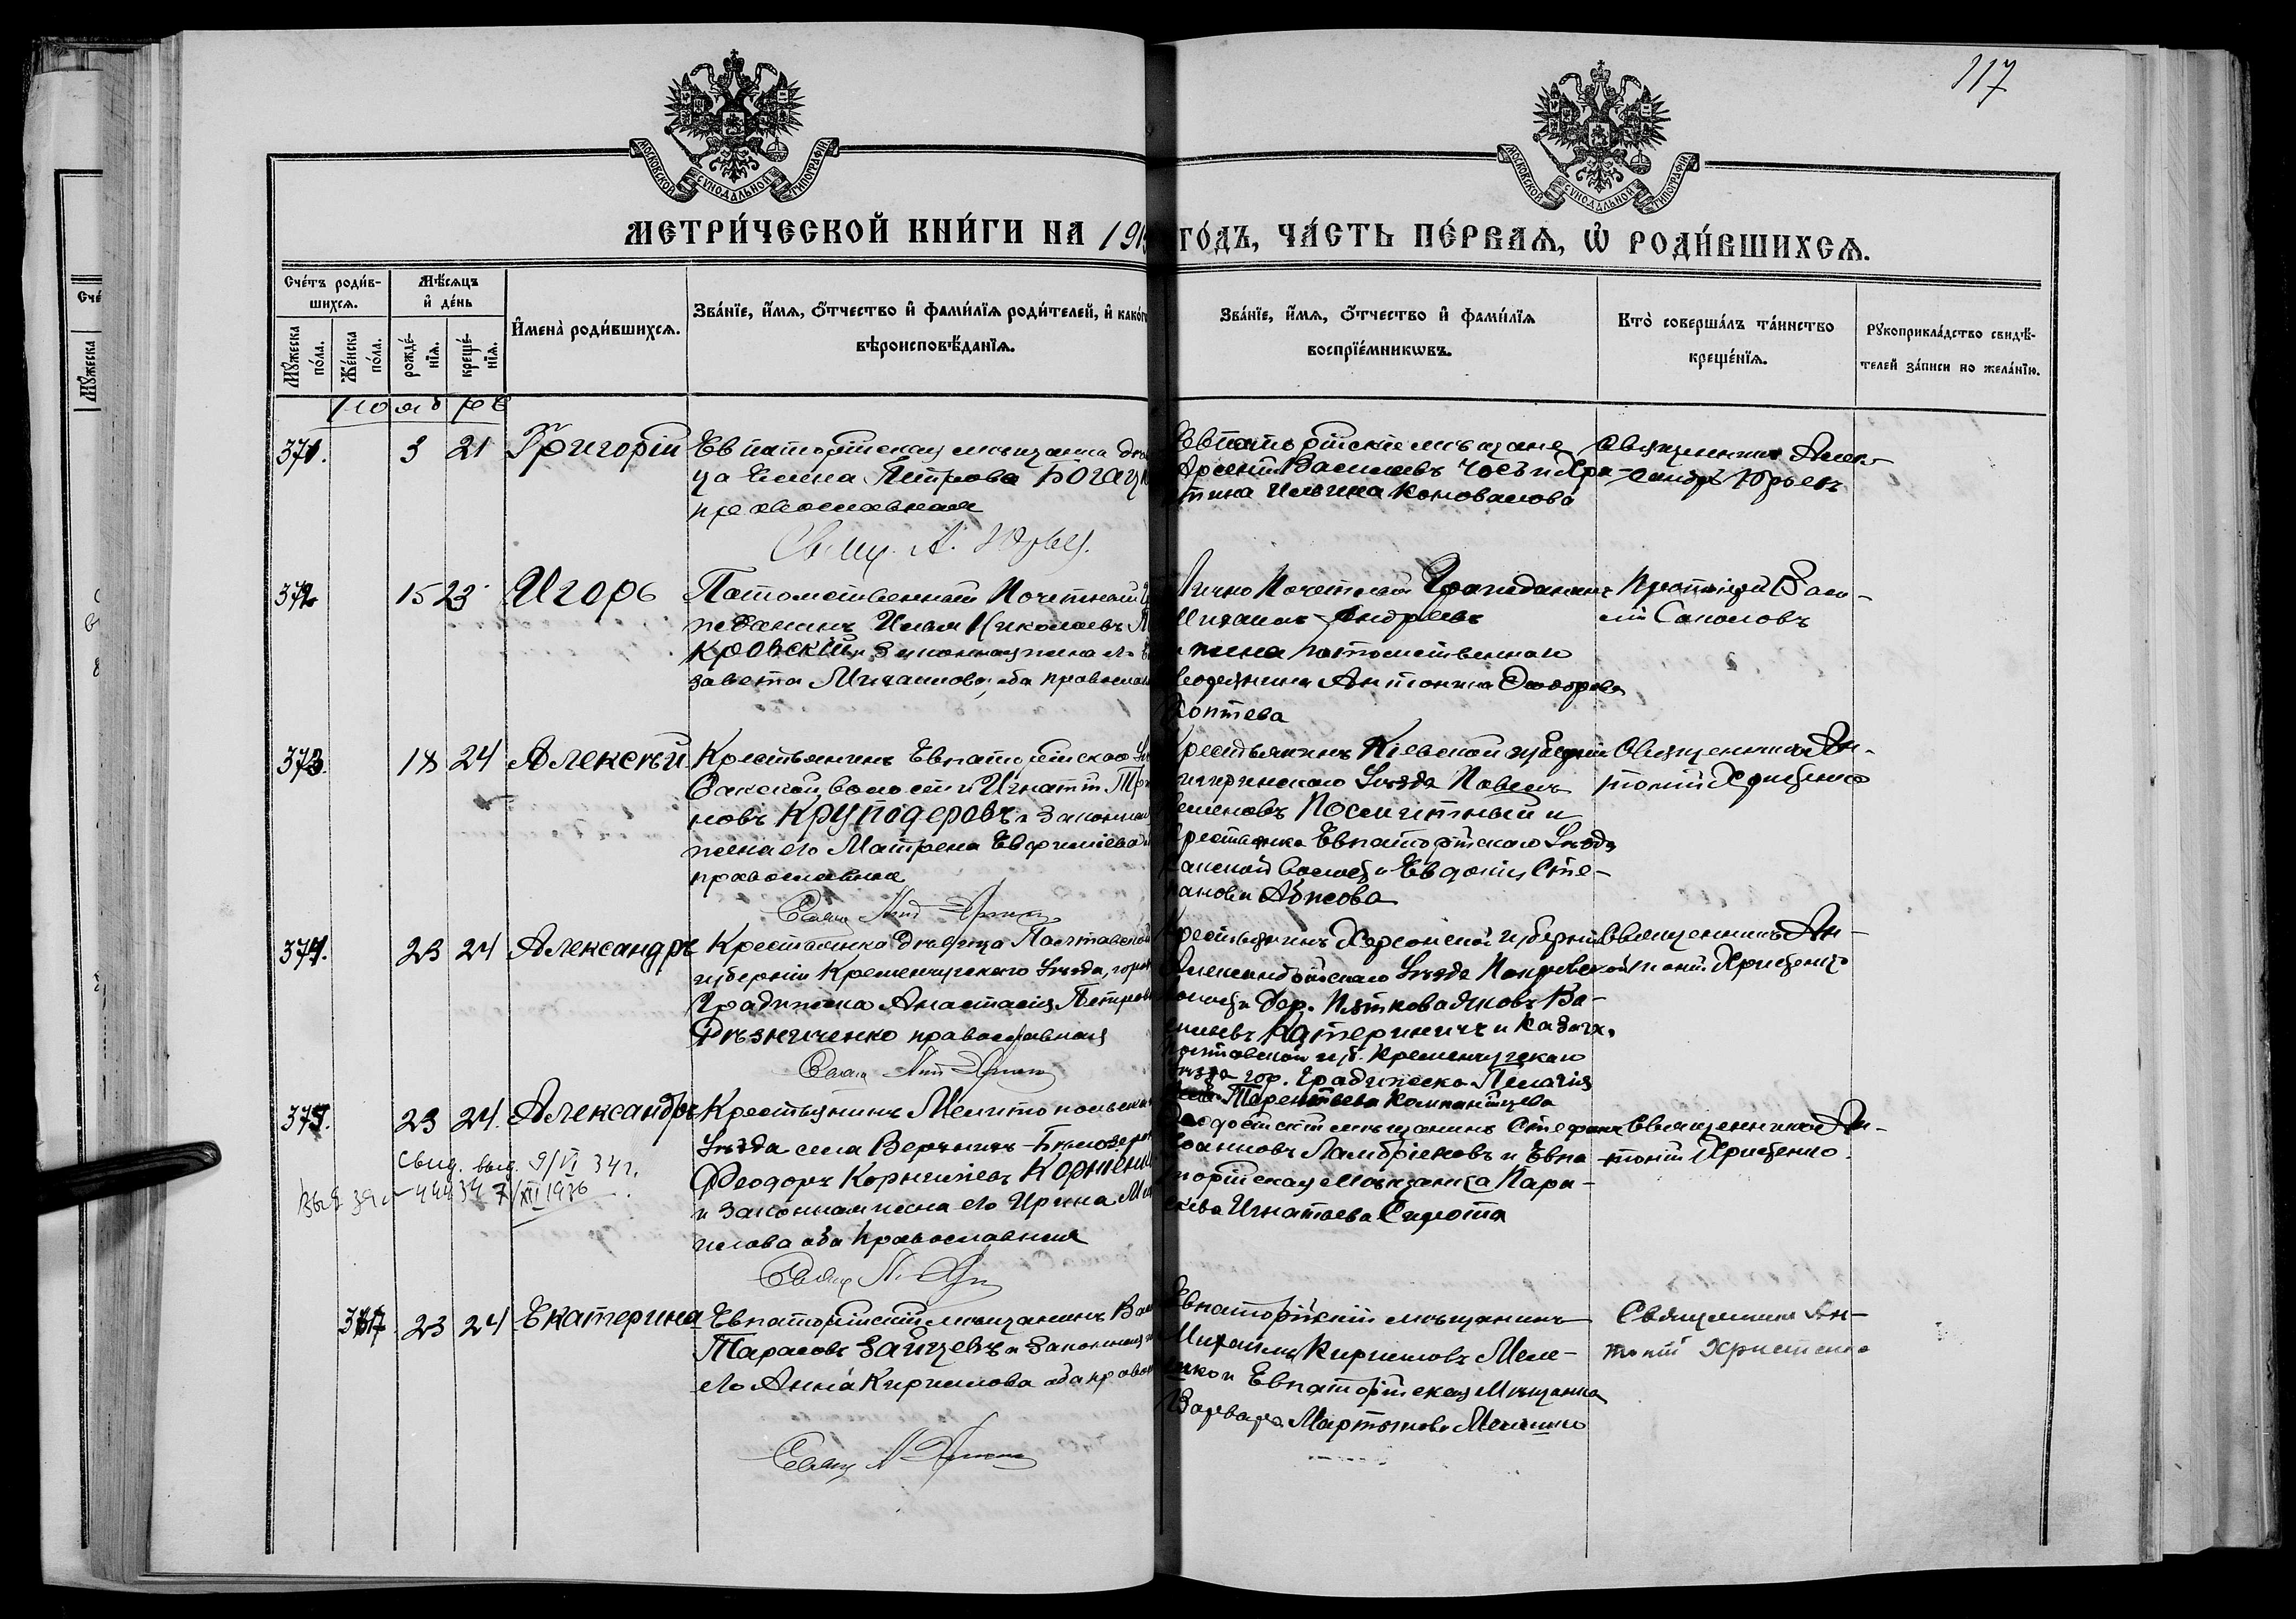 117
МОСКОВСКОЙ СѴНОДАЛЬНОЙ ТИПОГРАФІИ
МОСКОВСКОЙ СѴНОДАЛЬНОЙ ТИПОГРАФІИ
МЕТРИ́ЧЕСКОЙ КНИ́ГИ НА 191
ГО́ДЪ, ЧА́СТЬ ПЕ́РВАѦ, Ѡ РОДИ́ВШИХСѦ.
Сче́тъ роди́в-
шихся.
Мѣ́сяцъ
и де́нь
Мꙋ́жеска по́ла.
Же́нска по́ла.
рожде́-нїя.
креще́-нїя.
И҆мена̀ роди́вшихся.
Зва́нїе, и҆́мя, ѻ҆́тчество и҆ фами́лїя роди́телей, и҆ како́г
вѣроисповѣ́данїя.
Зва́нїе, и҆́мя, ѻ҆́тчество и҆ фами́лїя
воспрїе́мникωвъ.
Кто̀ соверша́лъ та́инство
креще́нїя.
Рꙋкоприкла́дство свидѣ́-
телей за́писи по жела́нїю.
Ноябрь
371. 3 21 Григорій
Евпаторійская мѣщанка дѣв
ца Елена Петрова Богац
православная
Свящ. А. Юрьев.
Евпаторійскіе мѣщане
Арсеній Васильевъ Чосъ и Хри-
тина Ильина Коновалова
Священникъ Алек-
сандръ Юрьевъ
372 15 23 Игорь
Потомственный Почетный Г
жданинъ Илья Николаевъ П
кровскій и законная жена его Е
завета Михаилова, оба правосла
Лично Почетный Гражданинъ
Михаилъ Андреевъ
и жена потомственнаго
дворянина Антонина Ѳеодорова
Коптева
Протоіерей Васи-
лій Соколовъ
373. 18 24 Алексѣй
Крестьянинъ Евпаторійскаго Уѣ
Сакской волости Игнатій Тр
новъ Круподеровъ и законная
жена его Матрена Евфиміева
православные
Крестьянинъ Кіевской губерніи
Чигиринскаго Уѣзда Павелъ
Семеновъ Посмитный и
крестьянка Евпаторійскаго Уѣзда
Сакской волости Евдокія Сте-
панова
Священникъ Ан-
тоній Христенко
374. 23 24 Александръ
Крестьянка дѣвица Полтавской
губерніи Кременчугскаго Уѣзда, гор
Градижска Анастасія Петров
Рѣзниченко православная
Крестьянинъ Херсонской губерніи
Александрійскаго Уѣзда Покровской
волости дер. Пятковa Яковъ Ва-
сильевъ Катериничъ и казачка
Полтавской губ. Кременчугскаго
Уѣзда гор. Градижска Пелагія
Терентьева Компанійцева
Священникъ Ан-
тоній Христенко
375. 23 24. Александръ
Крестьянинъ Мелитопольска
Уѣзда села Верхнихъ-Бѣлозер
Ѳеодоръ Корниліевъ Корніен
и законная жена его Ирина М
илова оба православные
свид. выд. 9/VI 34г.
7/XII 1936
Ѳеодосійскій мѣщанинъ Стефанъ
Іоанновъ Ламбріановъ и Евпа
торійская мѣщанка Пара-
скева Игнатьева Сирота
Священникъ Ан-
тоній Христенко.
23 24 Екатерина
Евпаторійскій мѣщанинъ Ва
Тарасовъ Зайцевъ и законная
его Анна Кириллова оба право
Евпаторійскій мѣщанинъ
Михаилъ Кирилловъ Меле-
шко и Евпаторійская Мѣщанка
Варвара Мартынова Мелешко
Священникъ Ан-
тоній Христенко